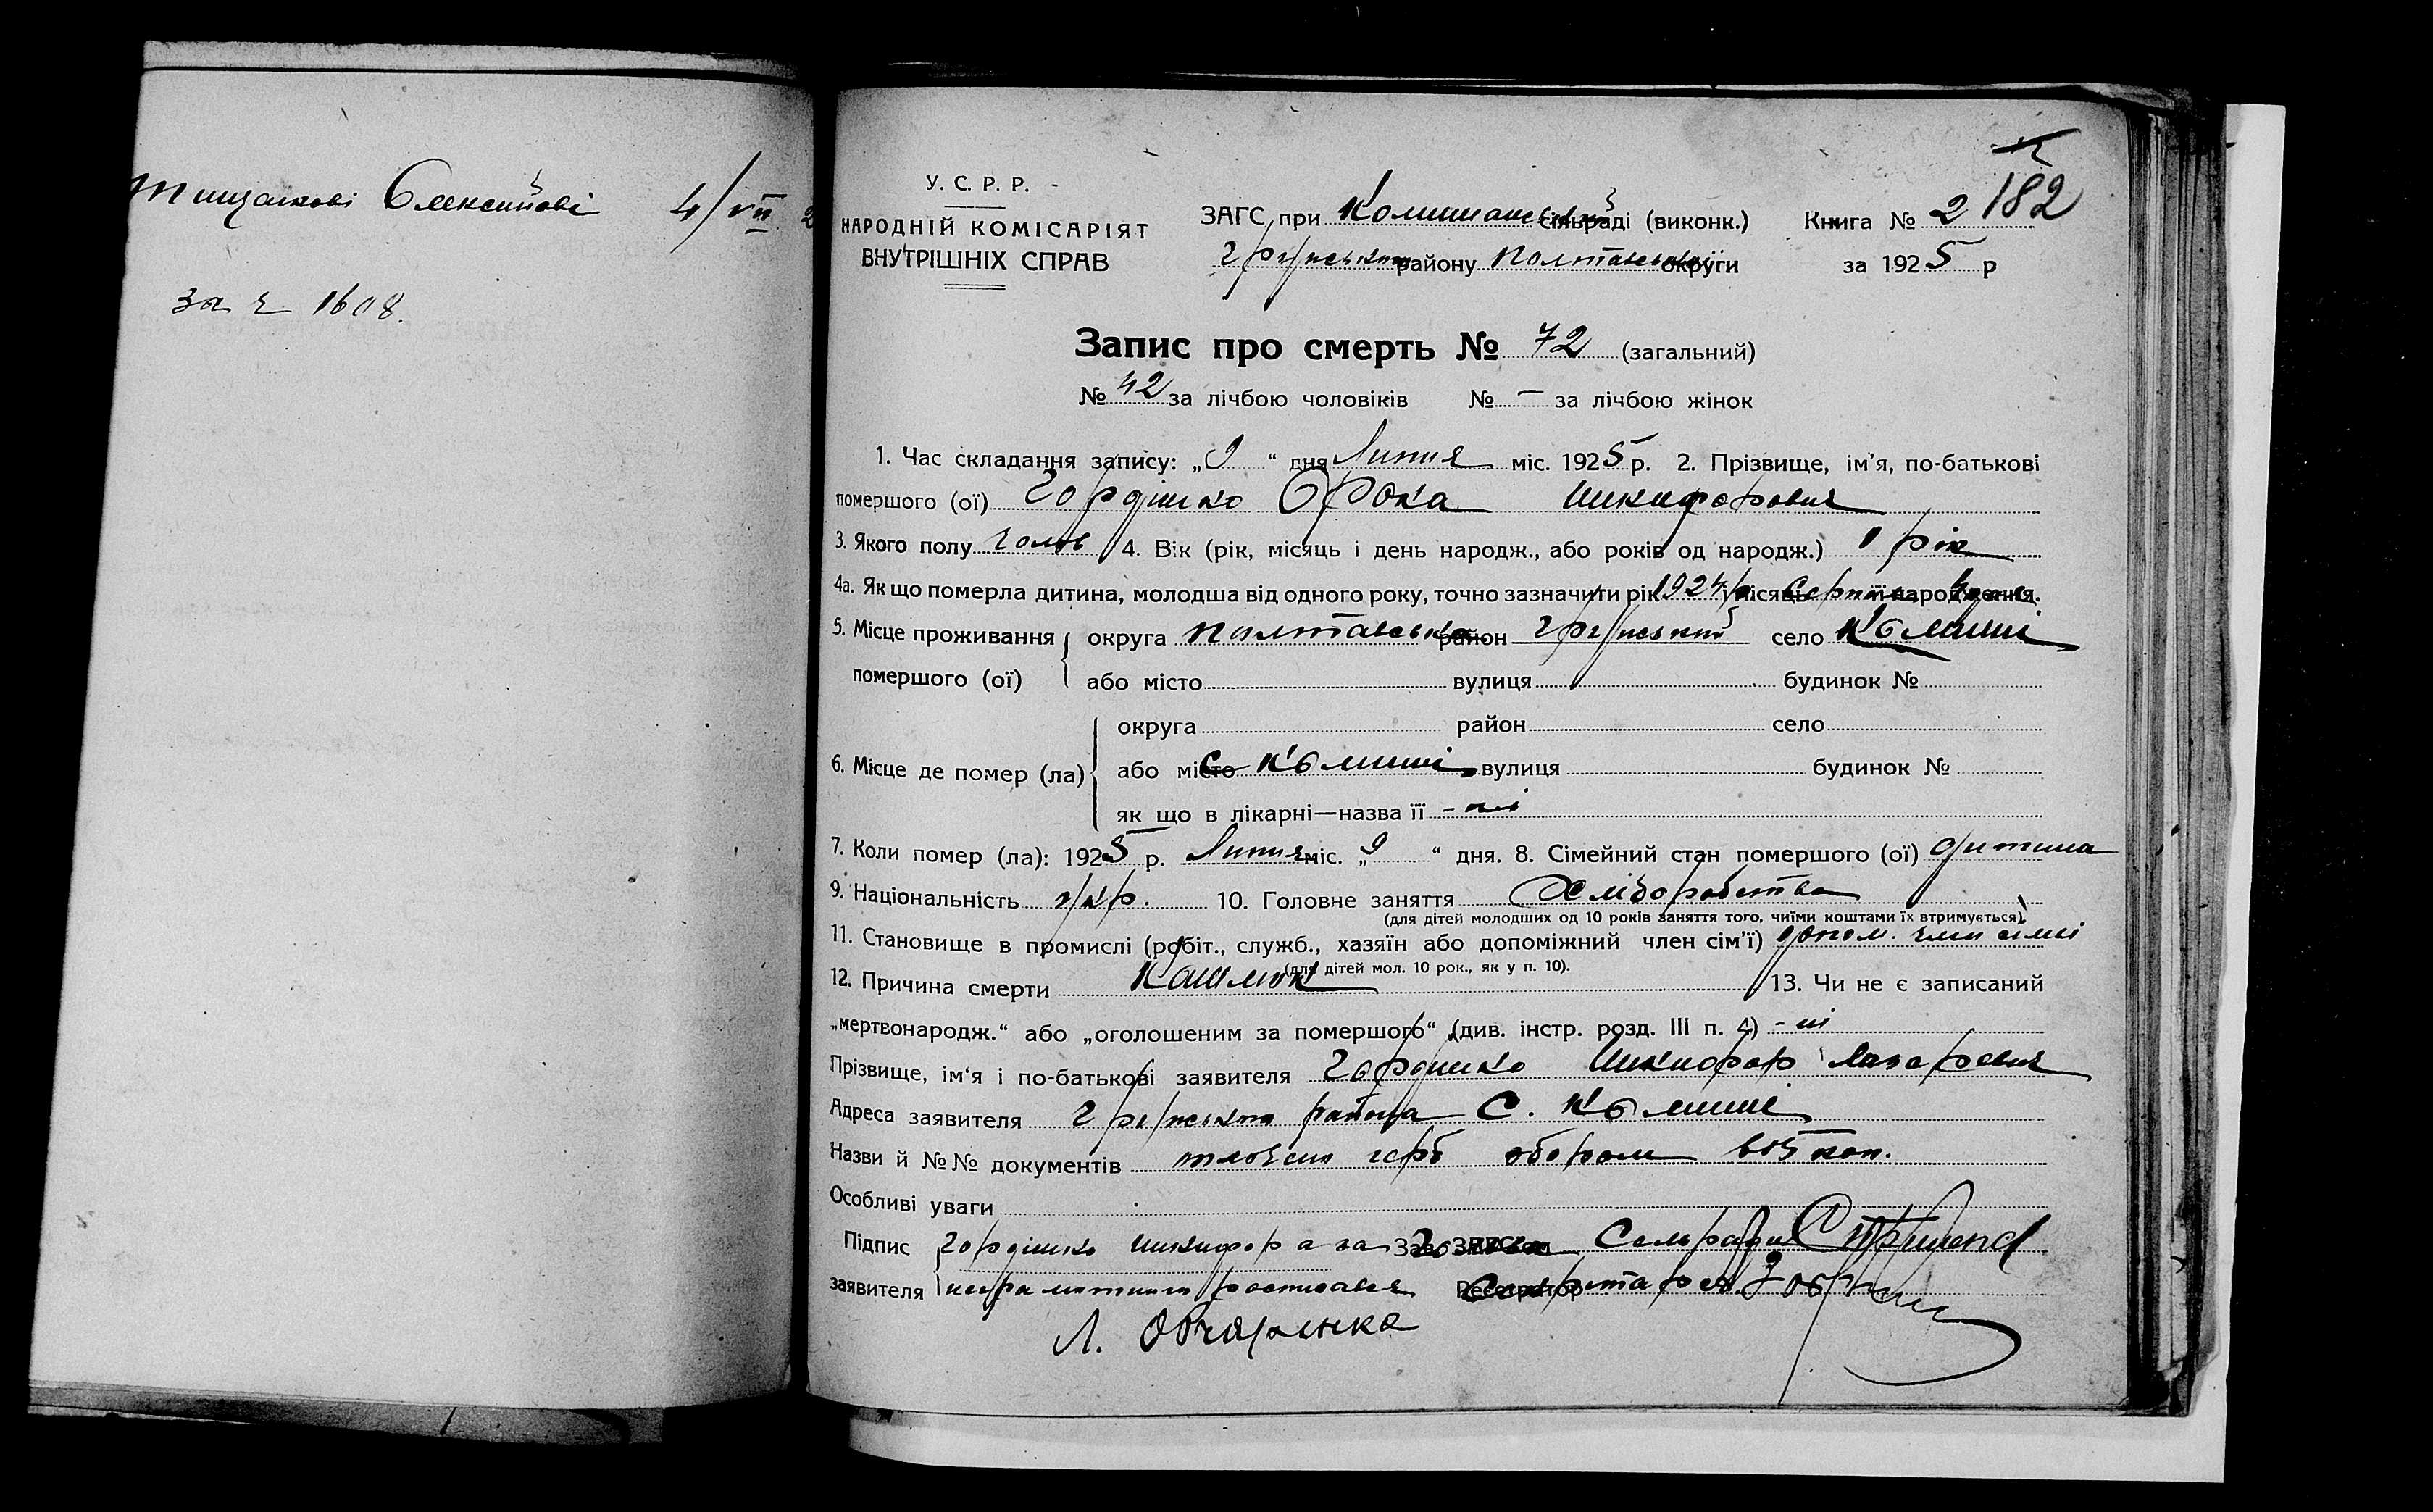 Тищенкові Олексійові 4/VII 2
за № 1608.
182
У. С. Р. Р.
НАРОДНІЙ КОМІСАРІЯТ
ВНУТРІШНІХ СПРАВ
ЗАГС при Комишанській сільраді (виконк.) Книга № 2
району Полтавської округи за 1925 р
Запис про смерть № 72 (загальний)
№ 42 за лічбою чоловіків № — за лічбою жінок
1. Час складання запису: „9“ дня Липня міс. 1925 р. 2. Прізвище, ім'я, по-батькові
помершого (ої) Гордієнко Никифорович
3. Якого полу чолов 4. Вік (рік, місяць і день народж., або років од народж.) 1 рік
4а. Як що померла дитина, молодша від одного року, точно зазначити рік 1924 р місяць Серпня її народження.
5. Місце проживання округа Полтавська район село Комиші
помершого (ої) або місто вулиця будинок №
округа район село
6. Місце де помер (ла) або місто с Комиші вулиця будинок №
як що в лікарні—назва її - ні
7. Коли помер (ла): 1925 р. Липня міс. „9“ дня. 8. Сімейний стан помершого (ої) дитина
9. Національність укр. 10. Головне заняття Хліборобство
(для дітей молодших од 10 років заняття того, чиїми коштами їх втримується)
11. Становище в промислі (робіт., служб., хазяїн або допоміжний член сім'ї) допом. член сімї
(для дітей мол. 10 рок., як у п. 10).
12. Причина смерти Кашлюк 13. Чи не є записаний
„мертвонародж.“ або „оголошеним за помершого“ (див. інстр. розд. III п. 4) - ні
Прізвище, ім'я і по-батькові заявителя Гордієнко Никифор Лазарович
Адреса заявителя района С. Комиші
Назви й №№ документів герб збором 5 коп.
Особливі уваги
Підпис Гордієнко Никифор а за Зав. ЗАГС'ом Сельради
заявителя неграмотного росписався Реєстратор Секретарь
Л. Овчаренко